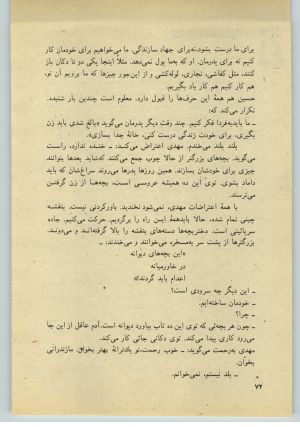 برای ما درست بشود، نه‌برای جهاد سازندگی. ما می‌خواهیم برای خودمان کار
کنیم نه برای پدرمان. او که به‌ما پول نمی‌دهد. مثلا اینجا یکی دو تا دکان باز
کنند، مثل کفاشی، نجاری، لوله‌کشی و از این‌جور چیزها که ما برویم آن تو،
هم کار کنیم هم کار یاد بگیریم.
حسین هم همهٔ این حرف‌ها را قبول دارد. معلوم است چندین بار شنیده.
تکرار می‌کند که:
ـ ما باید به‌فردا فکر کنیم. چند وقت دیگر پدرمان می‌گوید «بالغ شدی باید زن
بگیری، برای خودت زندگی درست کنی، خانهٔ جدا بسازی».
بلند بلند می‌خندم. مهدی اعتراض می‌کند: ـ خنده ندارد، راست
می‌گوید. بچه‌های بزرگتر از حالا چوب جمع می‌کنند که‌شاید بعدها بتوانند
چیزی برای خودشان بسازند. همین روزها پدرها می‌روند سراغ‌شان که باید
داماد بشوی. توی این ده همیشه عروسی است، بچه‌ها از زن گرفتن
می‌ترسند.
با همهٔ اعتراضات مهدی، نمی‌شود نخندید. باورکردنی نیست. بنفشه
چینی تمام شده، حالا باید همهٔ این راه را برگردیم. حرکت می‌کنیم. جاده
سربالینی است. دختربچه‌ها دسته‌های بنفشه را بالا گرفته‌انـد و می‌دونـد.
بزرگترها از پشت سر به‌مسخره می‌خوانند و می‌خندند:
«این بچه‌های دیوانه
در خاورمیانه
اعدام باید گردند!»
ـ این دیگر چه سرودی است؟
ـ خودمان ساخته‌ایم.
ـ چرا؟
ـ چون هر بچه‌تی که توی این ده تاب بیاورد دیوانه است. آدم عاقل از این جا
می‌رود کاری پیدا می‌کند. توی دکانی جائی کار می‌کند.
مهدی به‌رحمت می‌گوید: ـ خوب رحمت، تو یک‌ترانهٔ بهتر بخوان. مازندرانی
بخوان.
ـ بلد نیستم، نمی‌خوانم.
۷۲